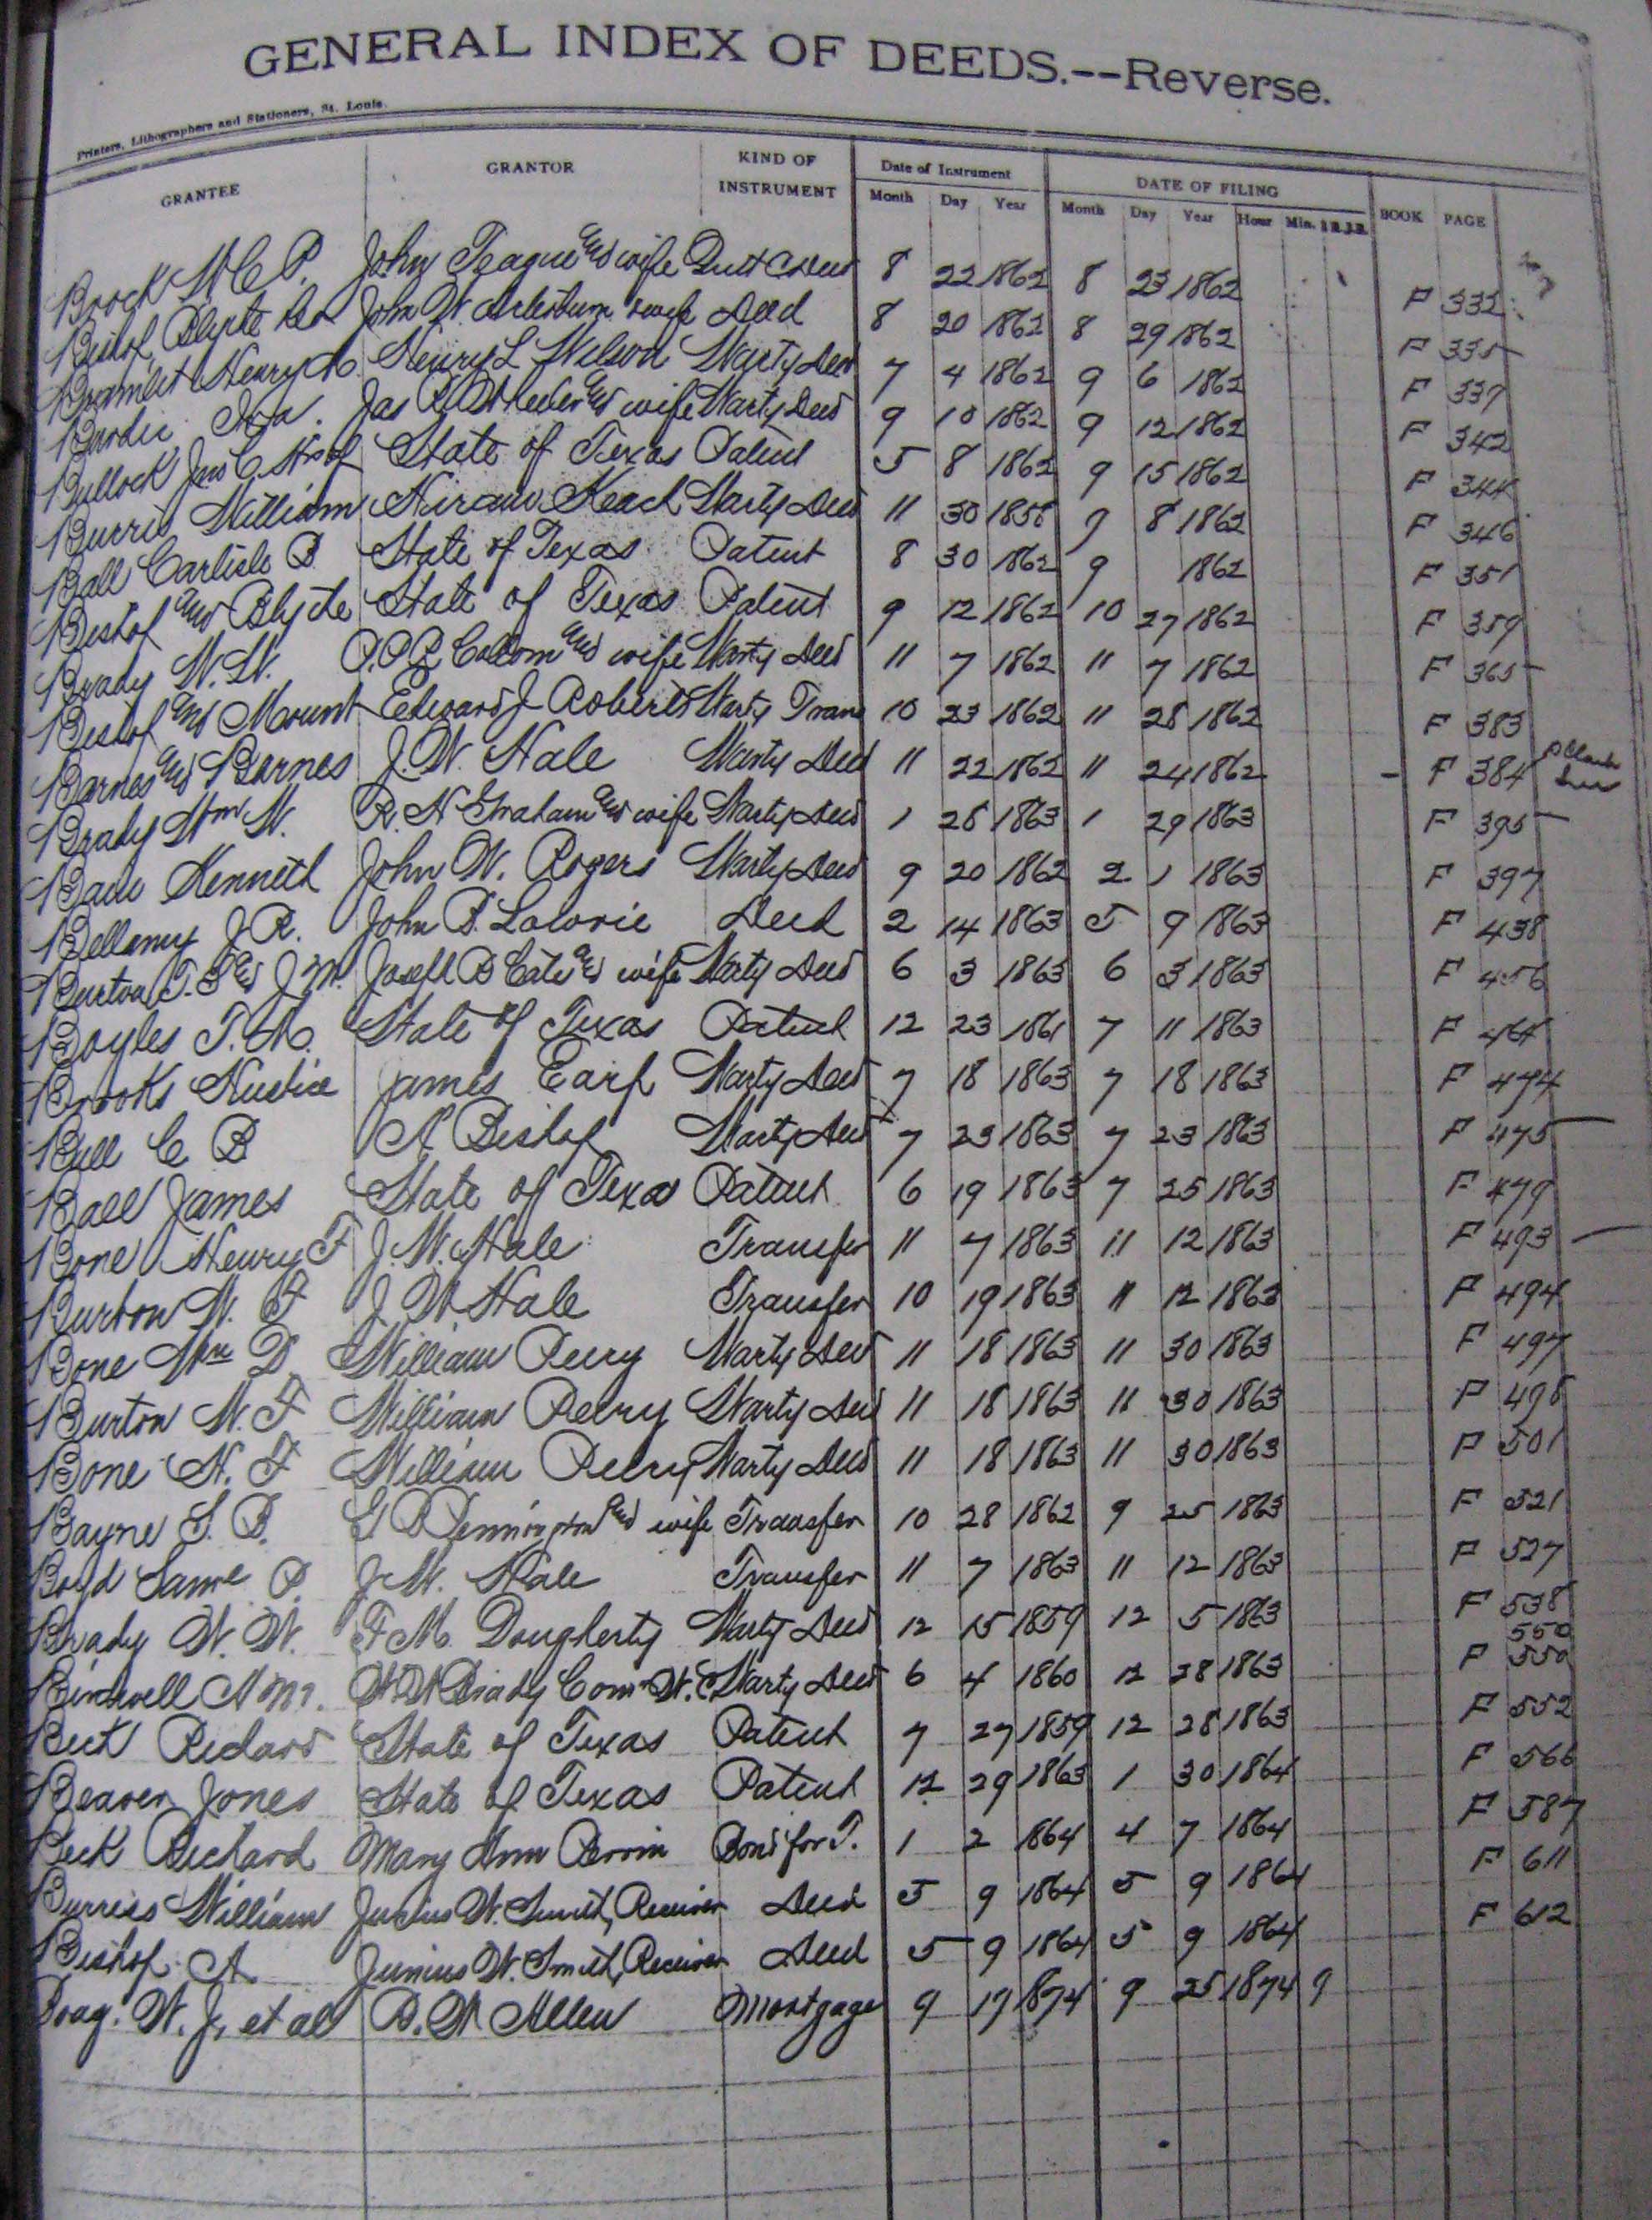 GENERAL INDEX OF DEEDS.--Reverse.
Printers, Lithographers and Stationers, St. Louis.
GRANTEE GRANTOR KIND OF INSTRUMENT Date of Instrument DATE OF FILING BOOK PAGE
Month Day Year Month Day Year Hour Min.
Brock W C P. John Teague and wife Quit C Deed 8 22 1862 8 23 1862 F 332
Bishop, Blyte John W. wife Deed 8 20 1862 8 29 1862 F 335
Bramlet Henry Henry L Wilson Warty Deed 7 4 1862 9 6 1862 F 337
Burdic Ira. Jas and wife Warty Deed 9 10 1862 9 12 1862 F 342
Bullock Jas C. State of Texas Patent 5 8 1862 9 15 1862 F 344
Burris William Hiram Keach Warty Deed 11 30 1858 9 8 1862 F 346
Ball Carlisle B State of Texas Patent 8 30 1862 9 1862 F 351
Bishop and Blyte State of Texas Patent 9 12 1862 10 27 1862 F 359
Brady W. W. and wife Warty Deed 11 7 1862 11 7 1862 F 365
Bishop and Mount Edward J Roberts Warty Trans 10 23 1862 11 28 1862 F 383
Barnes and Barnes J. W. Hale Warty Deed 11 22 1862 11 24 1862 F 384
Brady Wm W. R. H Graham and wife Warty Deed 1 28 1863 1 29 1863 F 395
Kenneth John W. Rogers Warty Deed 9 20 1862 2 1 1863 F 397
Bellamy J R. John B. Lowrie Deed 2 14 1863 5 9 1863 F 438
Burton and J M. Joseph B Cate and wife Warty Deed 6 3 1863 6 3 1863 F 456
Boyles State of Texas Patent 12 23 1861 7 11 1863 F 464
Brooks James Earp Warty Deed 7 18 1863 7 18 1863 F 474
Bell C B A Bishop Warty Deed 7 23 1863 7 23 1863 F 475
Ball James State of Texas Patent 6 19 1863 7 25 1863 F 479
Bone Henry F J. W. Hale Transfer 11 7 1863 11 12 1863 F 493
Burton W. F J. W. Hale Transfer 10 19 1863 11 12 1863 F 494
Bone Wm D William Perry Warty Deed 11 18 1863 11 30 1863 F 497
Burton W. F William Perry Warty Deed 11 18 1863 11 30 1863 F 498
Bone H. F William Perry Warty Deed 11 18 1863 11 30 1863 F 501
Bayne S. B. Pennington and wife Transfer 10 28 1862 9 25 1863 F 521
Boyd Saml P. J. W. Hale Transfer 11 7 1863 11 12 1863 F 527
Brady W. W. F M. Dougherty Warty Deed 12 15 1859 12 5 1863 F 538
550
Birdwell A M. W. W Brady Com Warty Deed 6 4 1860 12 28 1863 F 550
Beck Richard State of Texas Patent 7 27 1859 12 28 1863 F 552
Beaver Jones State of Texas Patent 12 29 1863 1 30 1864 F 566
Beck Richard Mary Ann Perrin Bond for T. 1 2 1864 4 7 1864 F 587
Burriss William Junius W. Smith, Receiver Deed 5 9 1864 5 9 1864 F 611
Bishop A Junius W. Smith, Receiver Deed 5 9 1864 5 9 1864 F 612
Boag. W. J., et al B. W Allen Mortgage 9 17 1874 9 25 1874 9